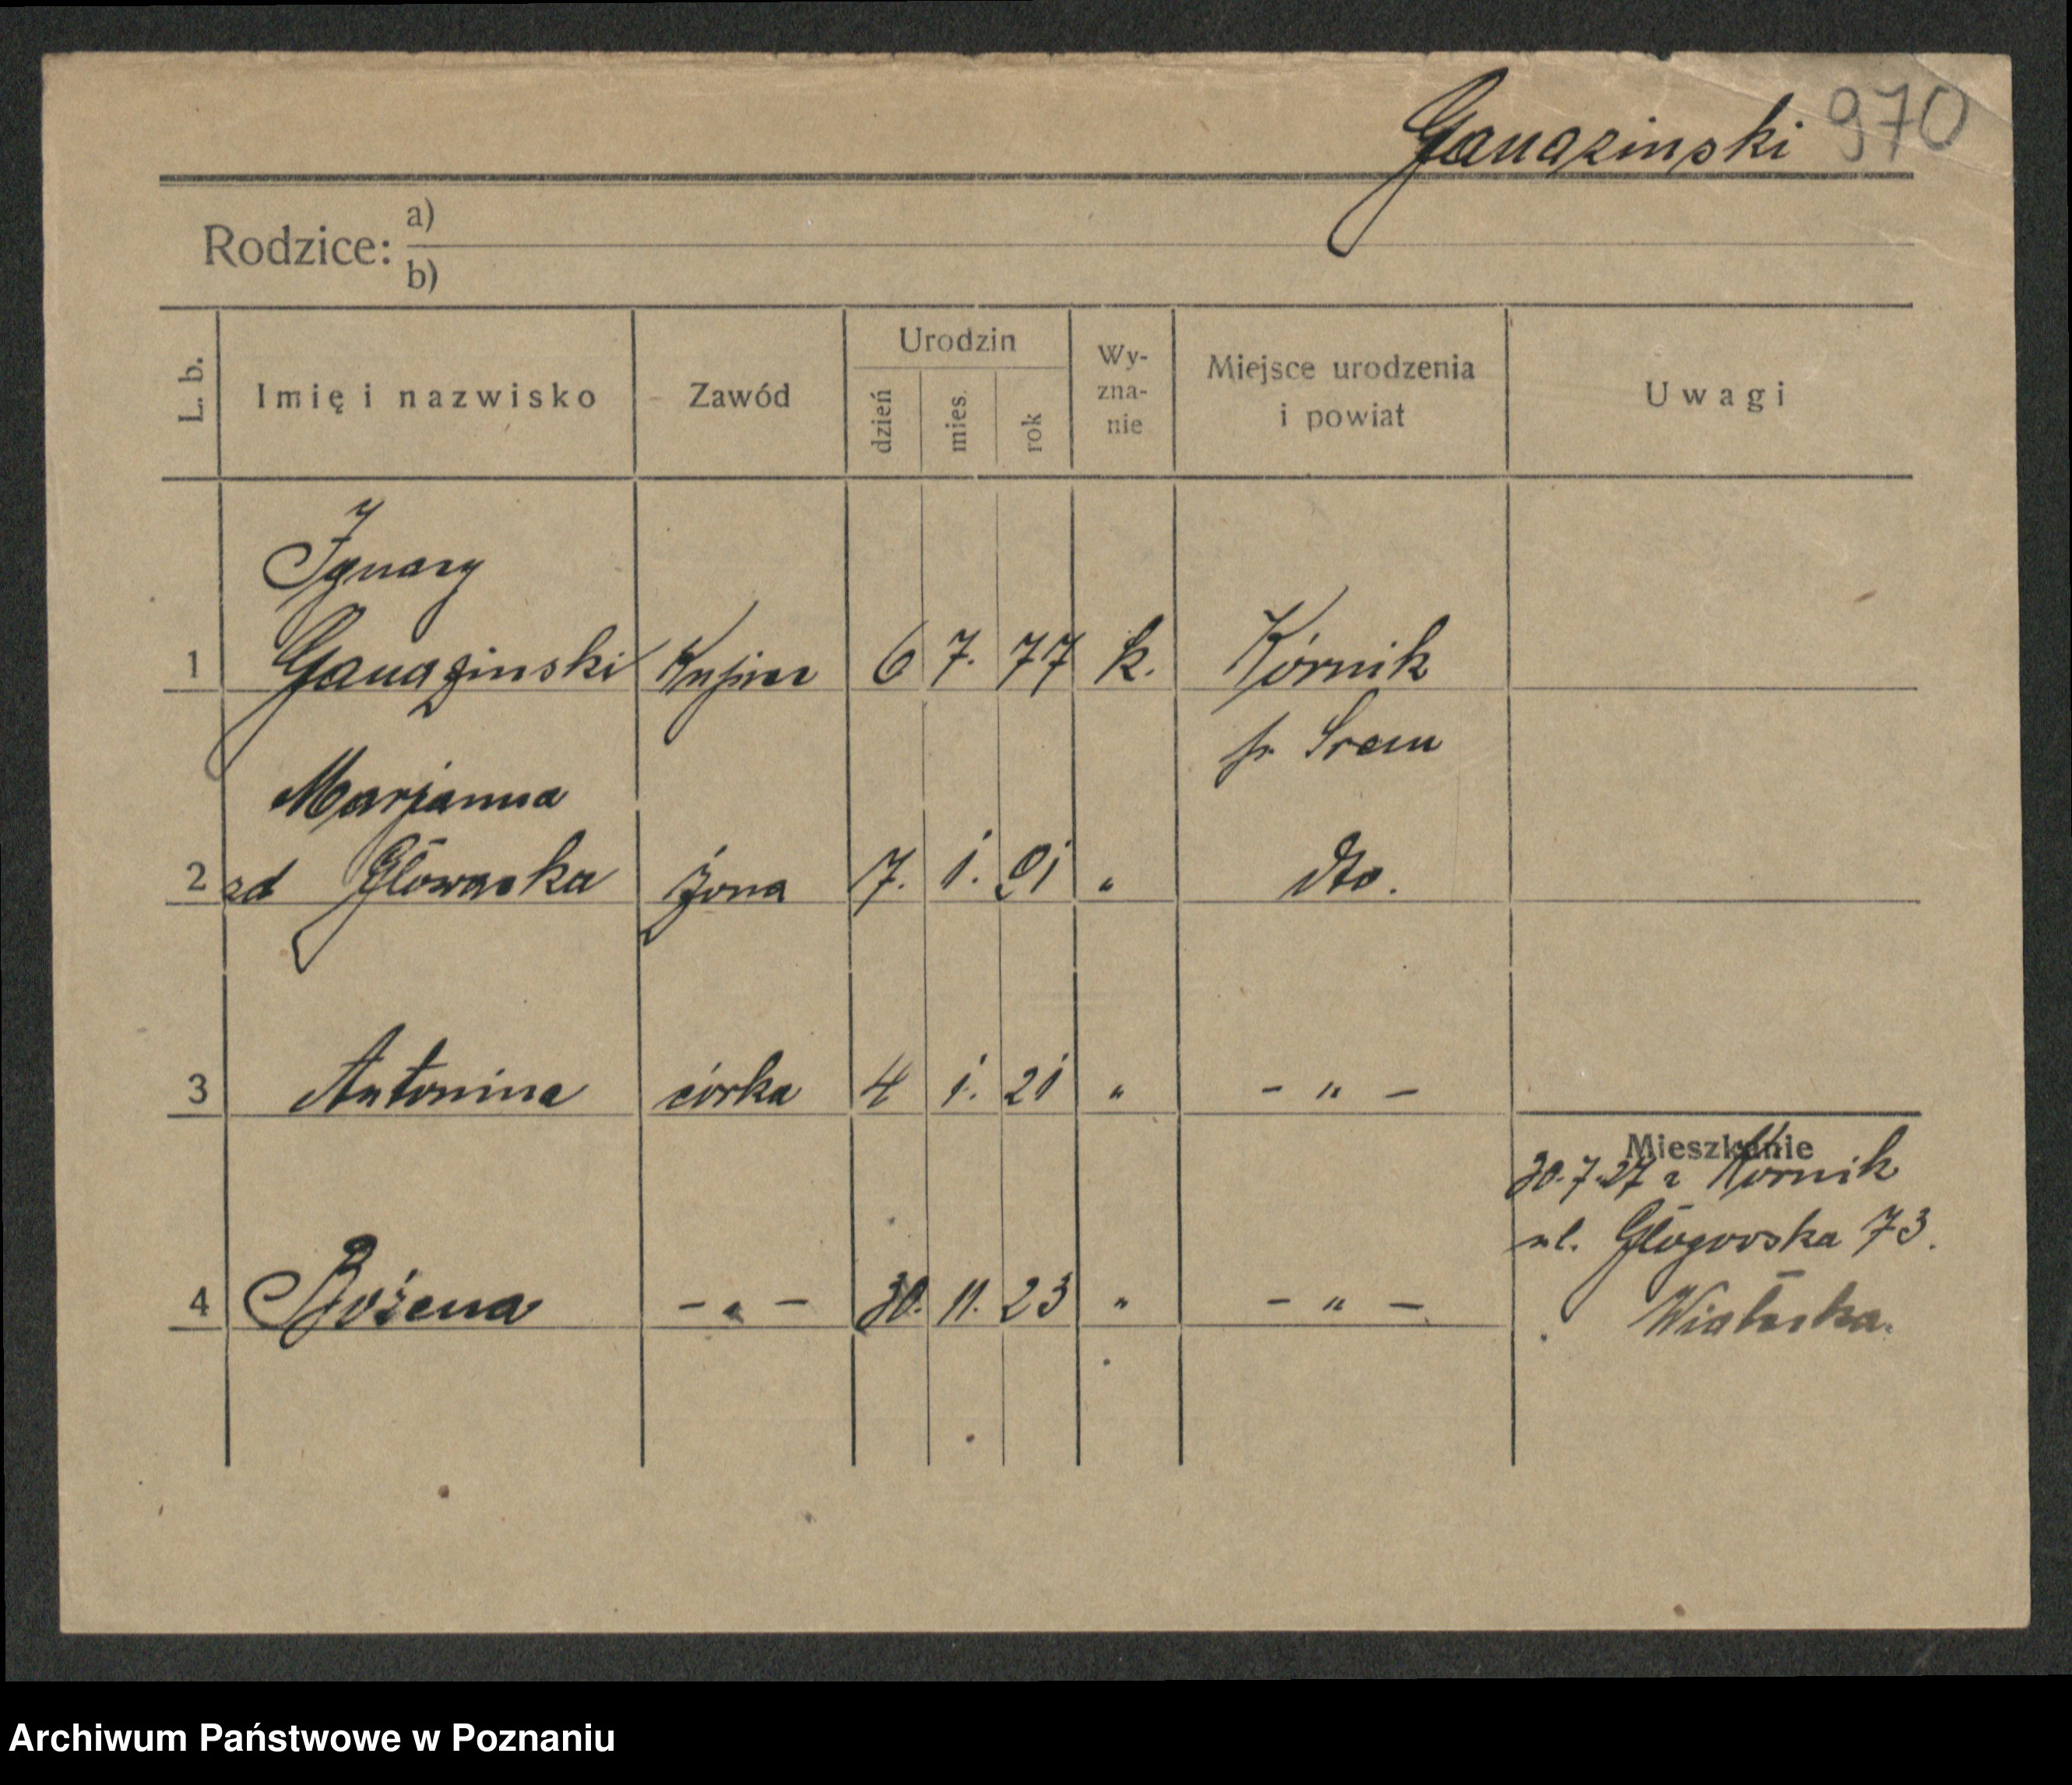 Ganazinski 970
Rodzice: a)
b)
L. b. Imię i nazwisko Zawód Urodzin dzień mies. rok Wy-zna-nie Miejsce urodzenia i powiat Uwagi
Ignacy
1 Ganazinski Kupiec 6 7. 77 k. Kórnik
p. Srem
Marjanna
2 zd Głowacka żona 7. 1. 91 " dto.
3 Antonina córka 4 1. 21 " - " -
Mieszkanie
30.7.27 z Kórnik
ul. Głogowska 73.
4 Bożena - " - 30. 11. 23 " - " -
Archiwum Państwowe w Poznaniu